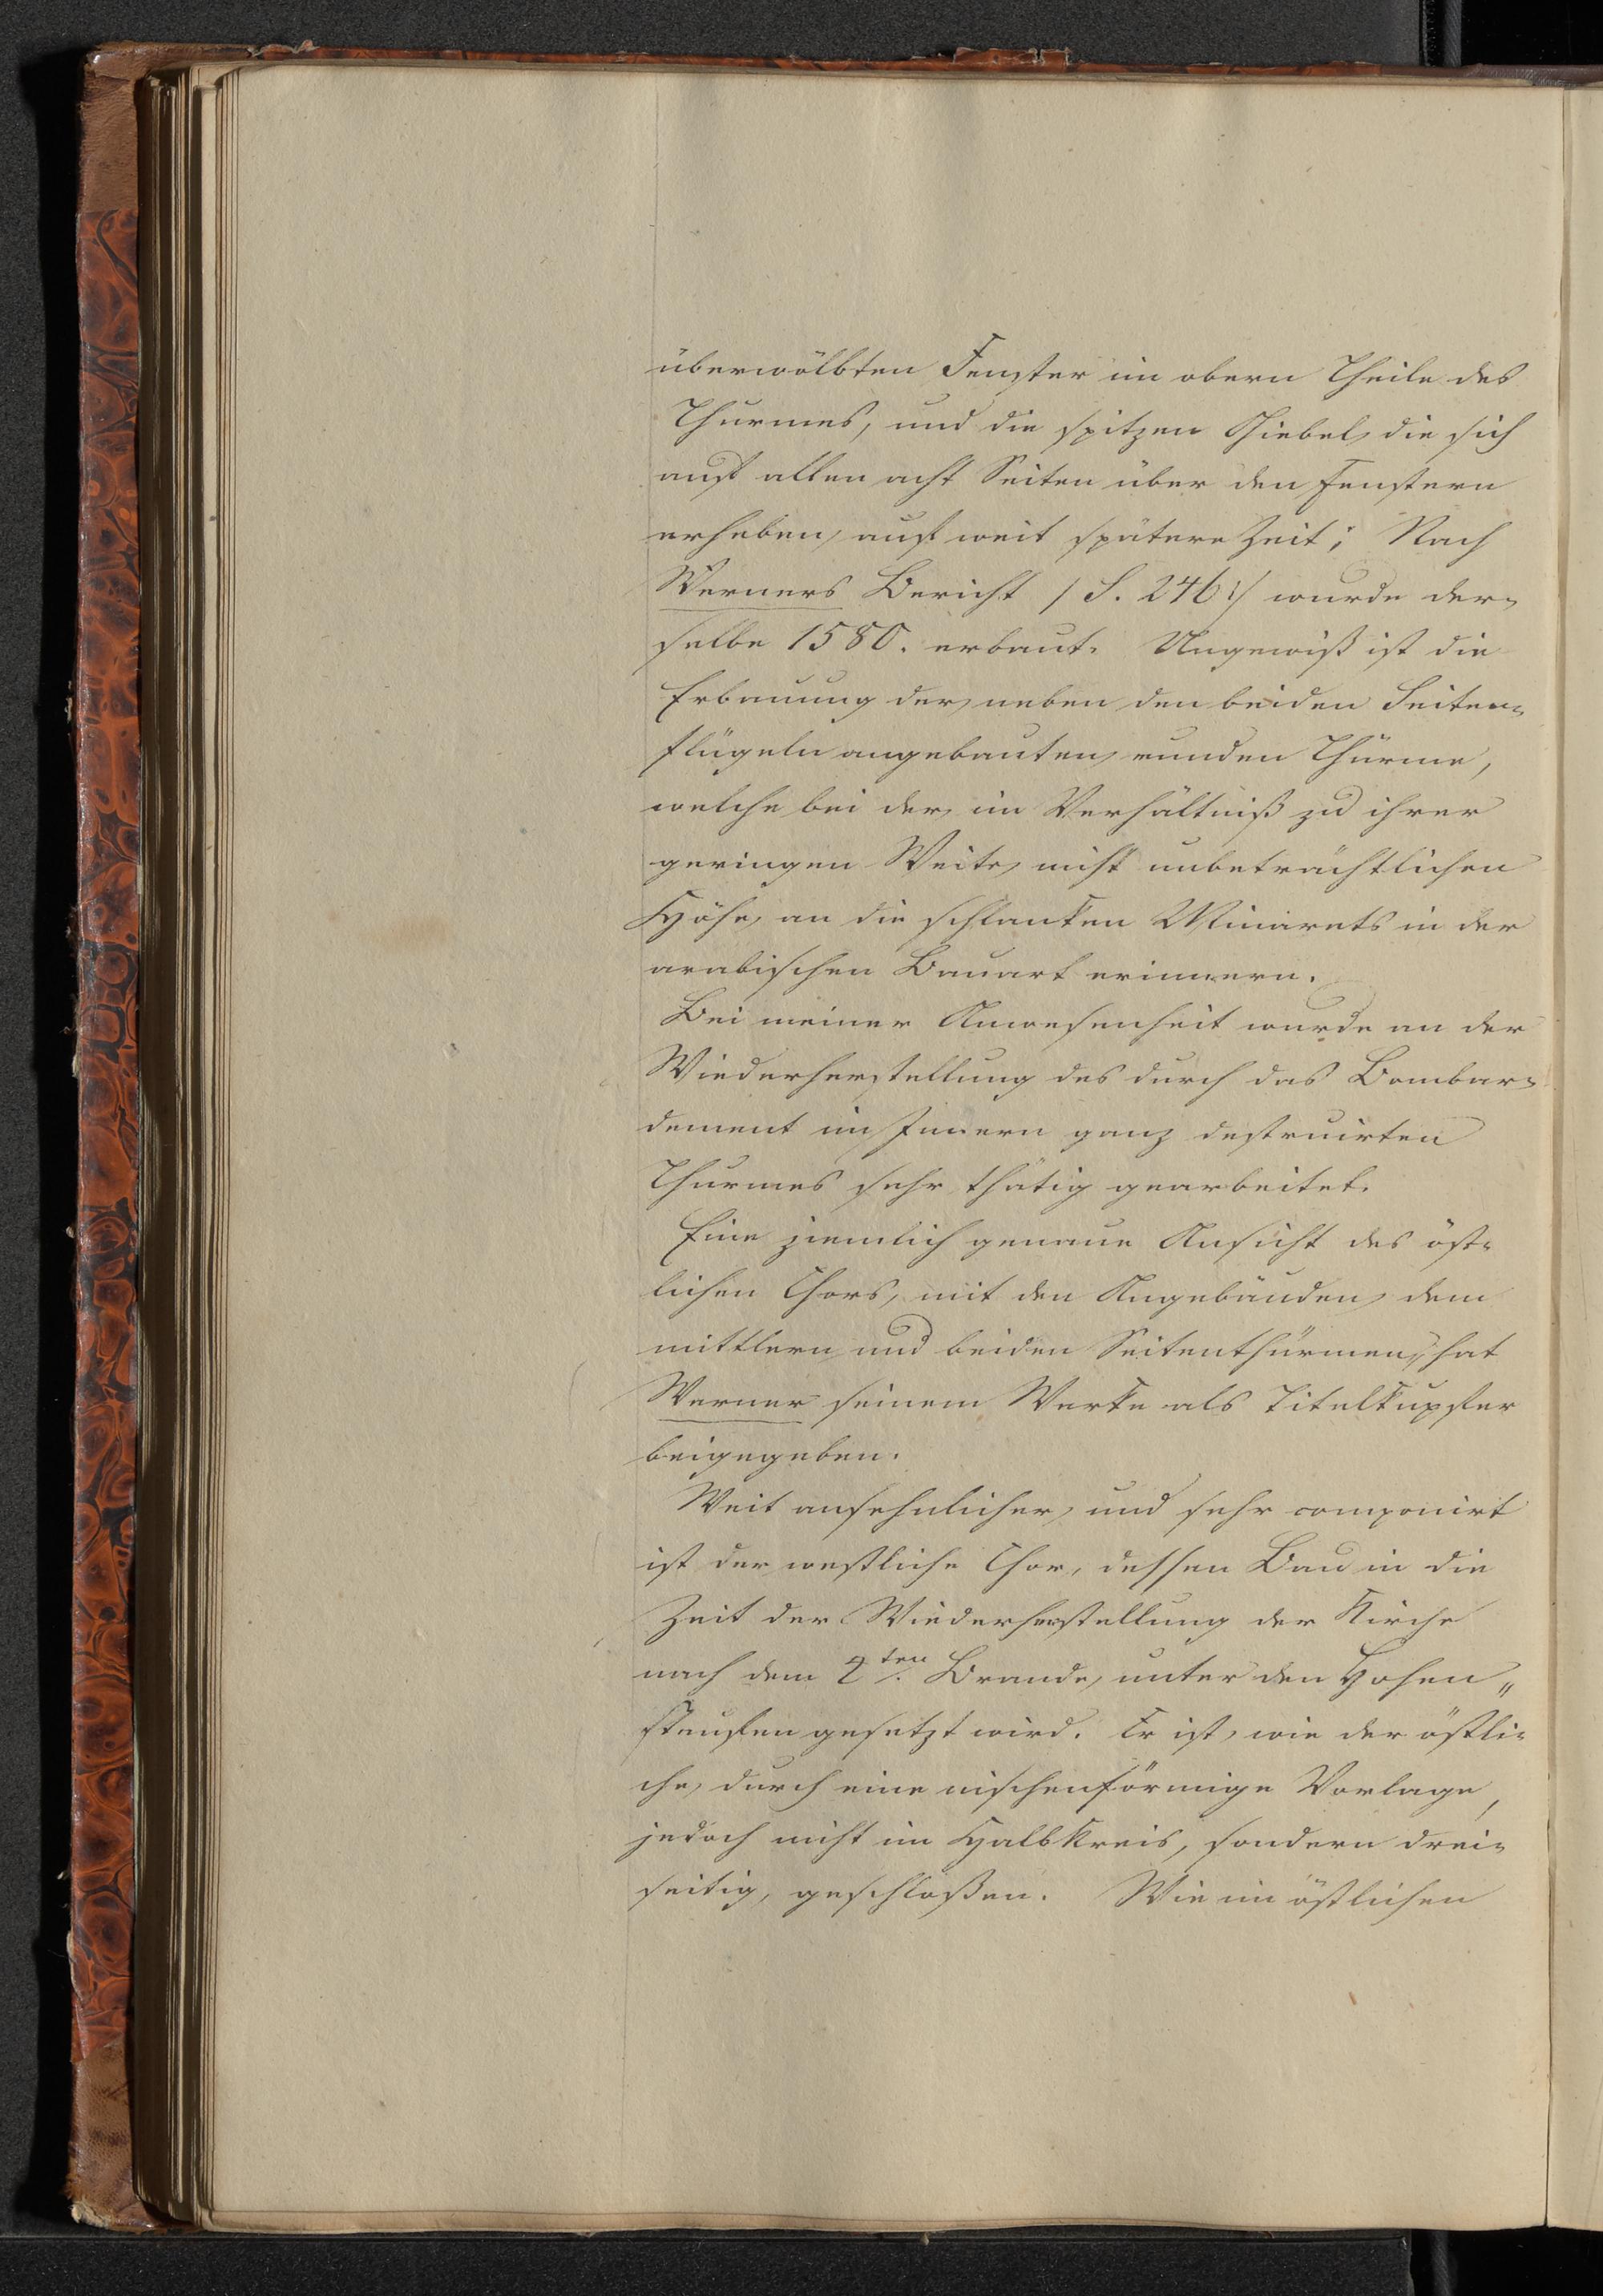 überwölbten Fenster im obern Theile des
Thurmes, und die spitzen Giebel, die sich
auf allen acht Seiten über den Fenstern
erheben, auf weit spätere Zeit; Nach
Werners Bericht /: S. 246 :/ wurde der-
selbe 1580. erbaut. Ungewiß ist die
Erbauung der, neben den beiden Seiten-
flügeln angebauten, runden Thürme,
welche bei der, im Verhältniß zu ihrer
geringen Weite, nicht unbeträchtlichen
Höhe, an die schlanken Minarets in der
arabischen Bauart erinnern.
Bei meiner Anwesenheit wurde an der
Wiederherstellung des durch das Bombar-
dement im Innern ganz destruirten
Thurmes sehr thätig gearbeitet.
Eine ziemlich genaue Ansicht des öst-
lichen Chors, mit den Angebäuden, dem
mittlern, und beiden Seitenthürmen, hat
Werner seinem Werke als Titelkupfer
beigegeben.
Weit ansehnlicher, und sehr componirt
ist der westliche Chor, dessen Bau in die
Zeit der Wiederherstellung der Kirche
nach dem 2ten. Brande, unter den Hohen„
staufen gesetzt wird. Er ist, wie der östli-
che, durch eine nischenförmige Vorlage,
jedoch nicht im Halbkreis, sondern drei-
seitig, geschloßen. Wie im östlichen